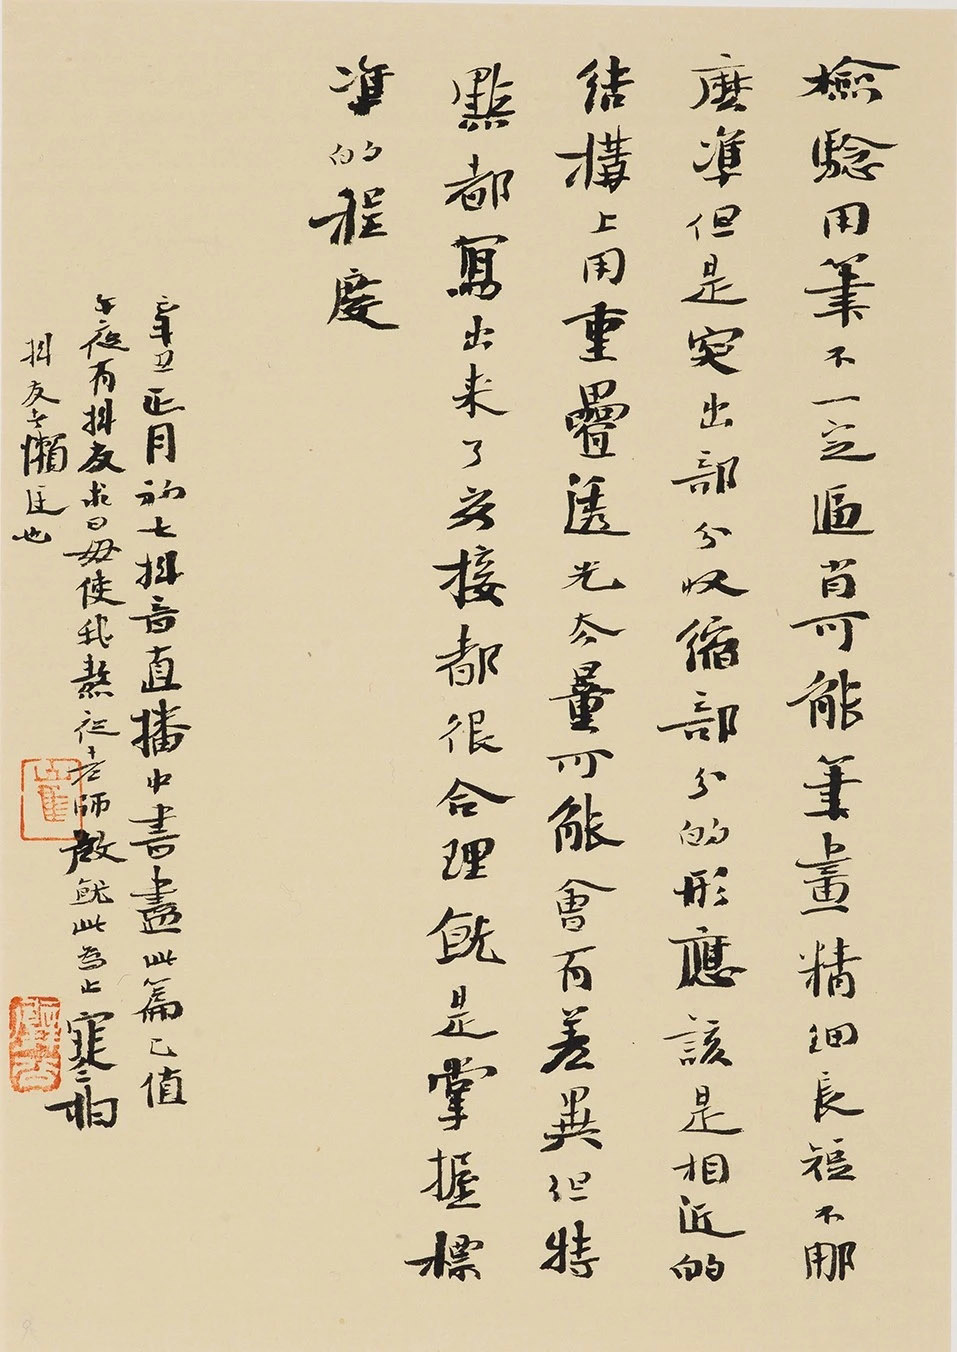 檢驗用筆不一定逼肖可能筆畫精細長短不那
麽準但是突出部分收縮部分的形應該是相近的
結構上用重疊透光太量可能會有差異但特
點都寫出來了安接都很合理既是掌握標
準的程度
辛丑正月初七抖音直播中書盡此篇已值
午夜有抖友求曰毋使我熬夜老師啟就此為止
抖友老懶廷也